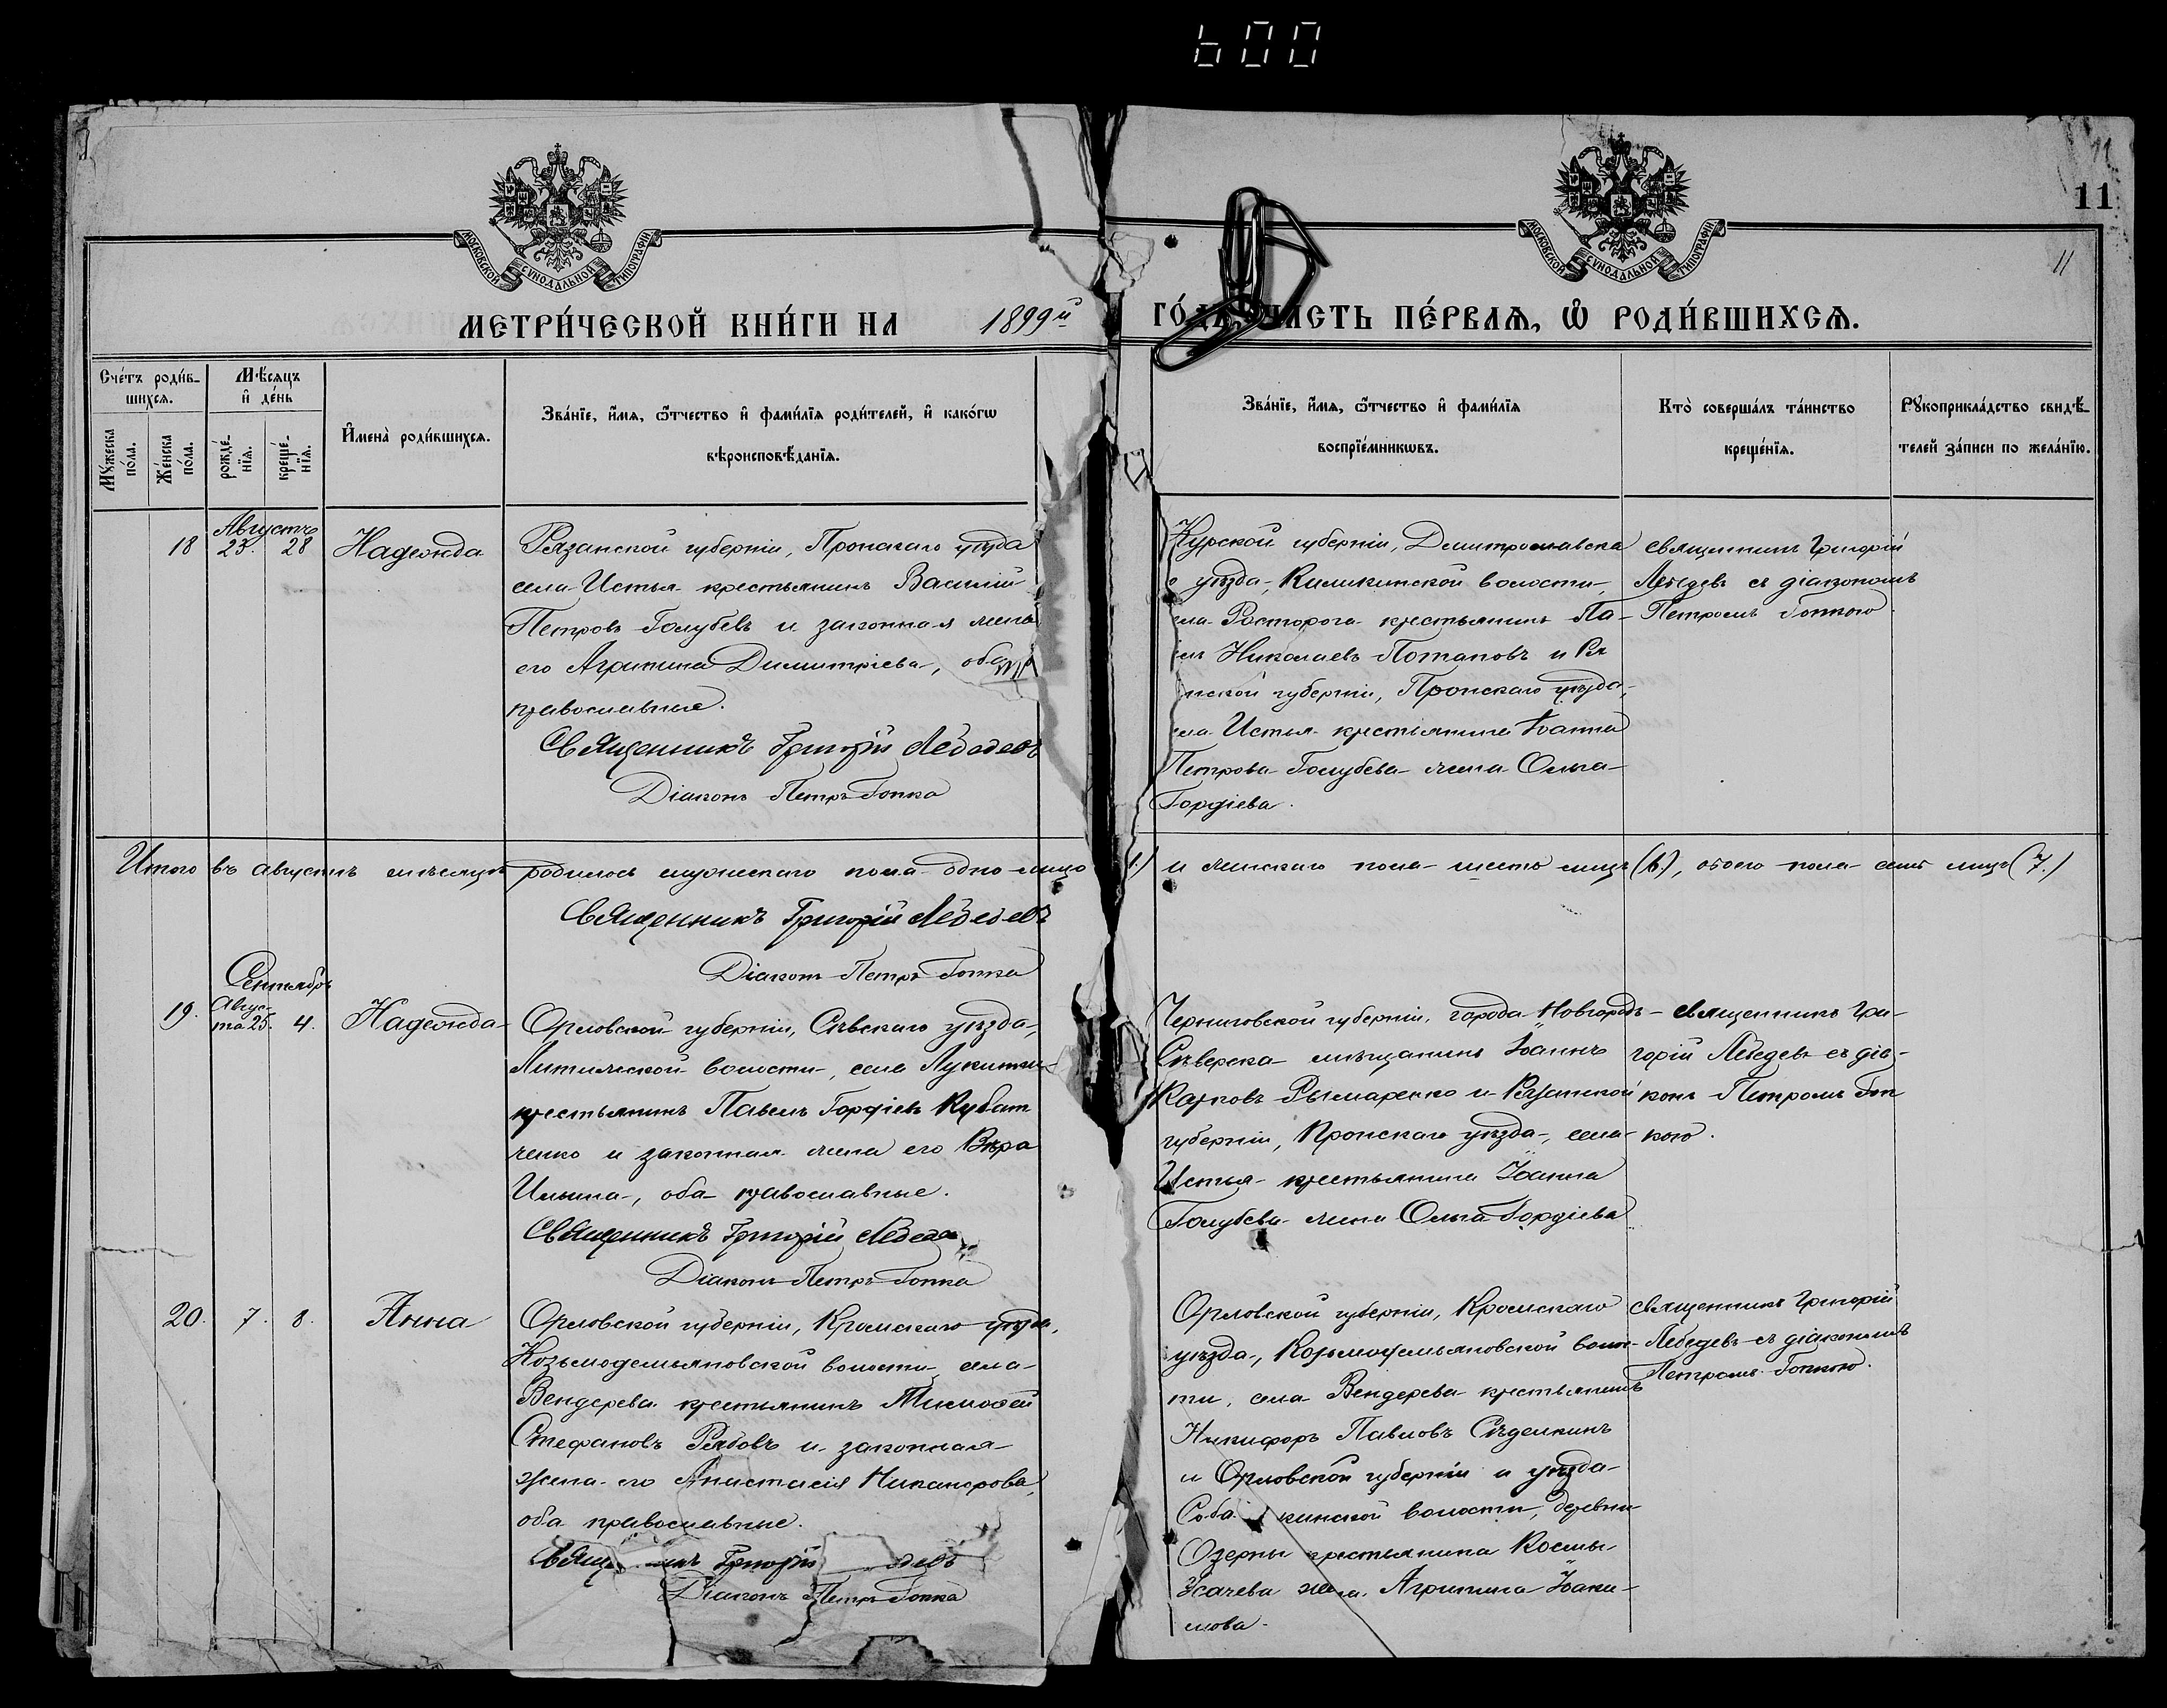 600
11
11
МОСКОВСКОЙ СѴНОДАЛЬНОЙ ТИПОГРАФІИ
МОСКОВСКОЙ СѴНОДАЛЬНОЙ ТИПОГРАФІИ
МЕТРИ́ЧЕСКОЙ КНИ́ГИ НА 1899й ГО́ДЪ, ЧАСТЬ ПЕ́РВАѦ, Ѡ РОДИ́ВШИХСѦ.
Сче́тъ роди́в-
шихсѧ.
Мꙋ́жеска
по́ла.
Же́нска
по́ла.
Мѣ́сѧцъ
и҆ де́нь
рожде́-
нїѧ.
креще́-
нїѧ.
И҆мена̀ роди́вшихсѧ.
Зва́нїе, и҆́мѧ, ѻ҆́тчество и҆ фами́лїѧ роди́телей, и҆ како́гѡ
вѣроисповѣ́данїѧ.
Зва́нїе, и҆́мѧ, ѻ҆́тчество и҆ фами́лїѧ
воспрїе́мникѡвъ.
Кто̀ соверша́лъ та́инство
креще́нїѧ.
Рꙋкоприкла́дство свидѣ́-
телей за́писи по жела́нїю.
Августъ
18 25. 28 Надежда
Рязанской губерніи, Пронскаго уѣзда
села Истья крестьянинъ Василій
Петровъ Голубевъ и законная жена
его Агрипина Димитріева, оба
православные.
Священникъ Григорій Лебедевъ
Діаконъ Петръ Гопка
Курской губерніи, Димитрославска
го уѣзда, волости,
села Расторога крестьянинъ Па-
Николаевъ Потаповъ и Ря
нской губерніи, Пронскаго уѣзда,
села Истья крестьянина Іоанна
Петрова Голубева жена Ольга
Гордіева.
священникъ Григорій
Лебедевъ съ діакономъ
Петромъ Гопкою.
Итого въ августѣ мѣсяцѣ родилось мужескаго пола одно лицо (1.) и женскаго пола шесть лицъ (6.), обоего пола семь лицъ (7.)
Священникъ Григорій Лебедевъ
Діаконъ Петръ Гопка
Сентябрь
19. Авгус-
та 25. 4. Надежда
Орловской губерніи, Сѣвскаго уѣзда,
волости, села
крестьянинъ Павелъ Гордіевъ Кубат
ченко и законная жена его Вѣра
Ильина, оба православные.
Священникъ Григорій Лебедев
Діаконъ Петръ Гопка
Черниговской губерніи, города Новгородъ-
Сѣверска мѣщанинъ Іоаннъ
Карповъ Рымаренко и Рязанской
губерніи, Пронскаго уѣзда, села
Истья крестьянина Іоанна
Голубева жена Ольга Гордіева
священникъ Гри-
горій Лебедевъ съ діа-
кон Петромъ Гоп
кою.
20. 7. 8. Анна
Орловской губерніи, Кромскаго уѣзда,
Козьмодемьяновской волости, села
Вендерева крестьянинъ Тимофей
Стефановъ Рябовъ и законная
жена его Анастасія Никанорова,
оба православные.
Свящ нникъ Григорій девъ
Діаконъ Петръ Гопка
Орловской губерніи, Кромскаго
уѣзда, Козьмодемьяновской волос-
ти, села Вендерева крестьянинъ
Никифоръ Павловъ Сѣделкинъ
и Орловской губерніи и уѣзда
Соба кинской волости, деревни
Озерны крестьянина Космы
Исачева жена Агрипина Іоаки-
мова.
священникъ Григорій
Лебедевъ съ діакономъ
Петромъ Гопкою.